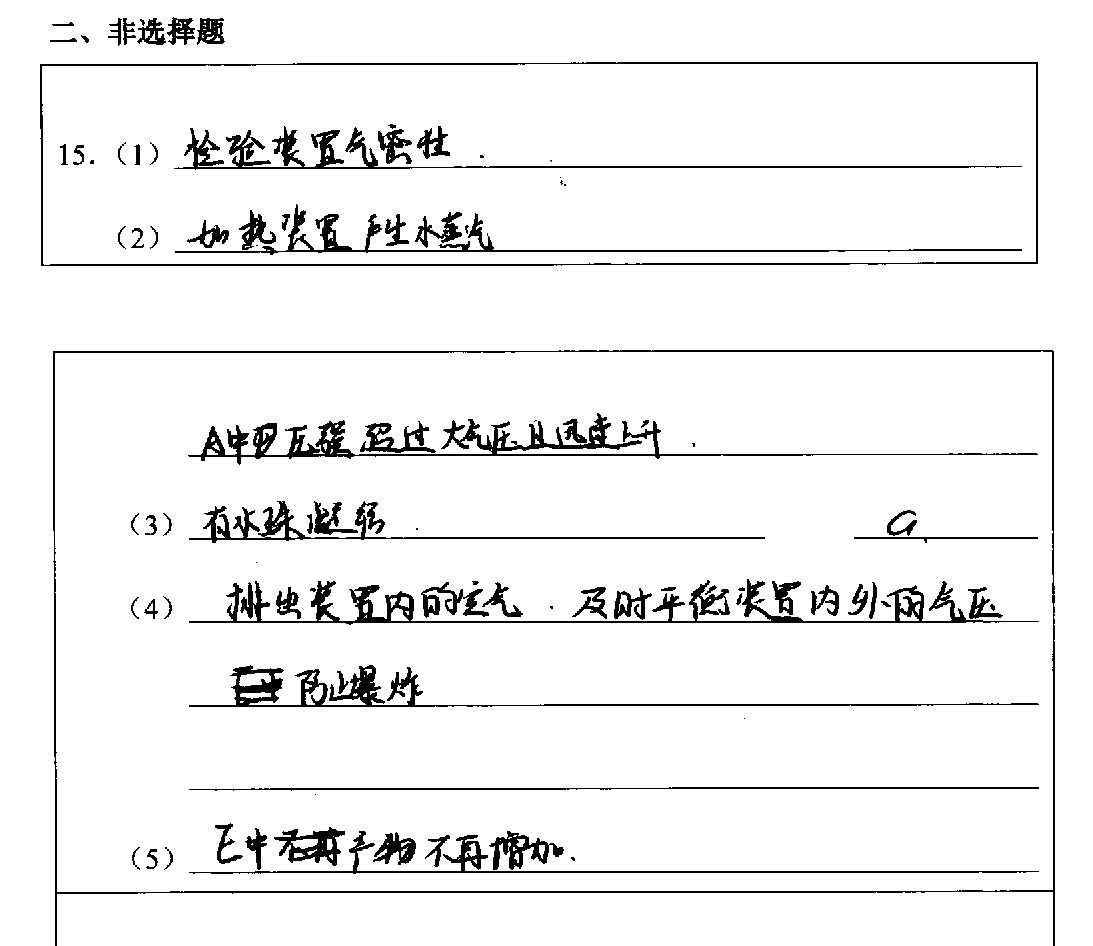 二、非选择题
15.（1）检验装置气密性.
（2）加热装置产生水蒸汽
A中压强超过大气压且迅速上升.
（3）有水珠凝结. a.
（4）排出装置内的空气.及时平衡装置内外的气压
防止爆炸
（5）E中产物不再增加.